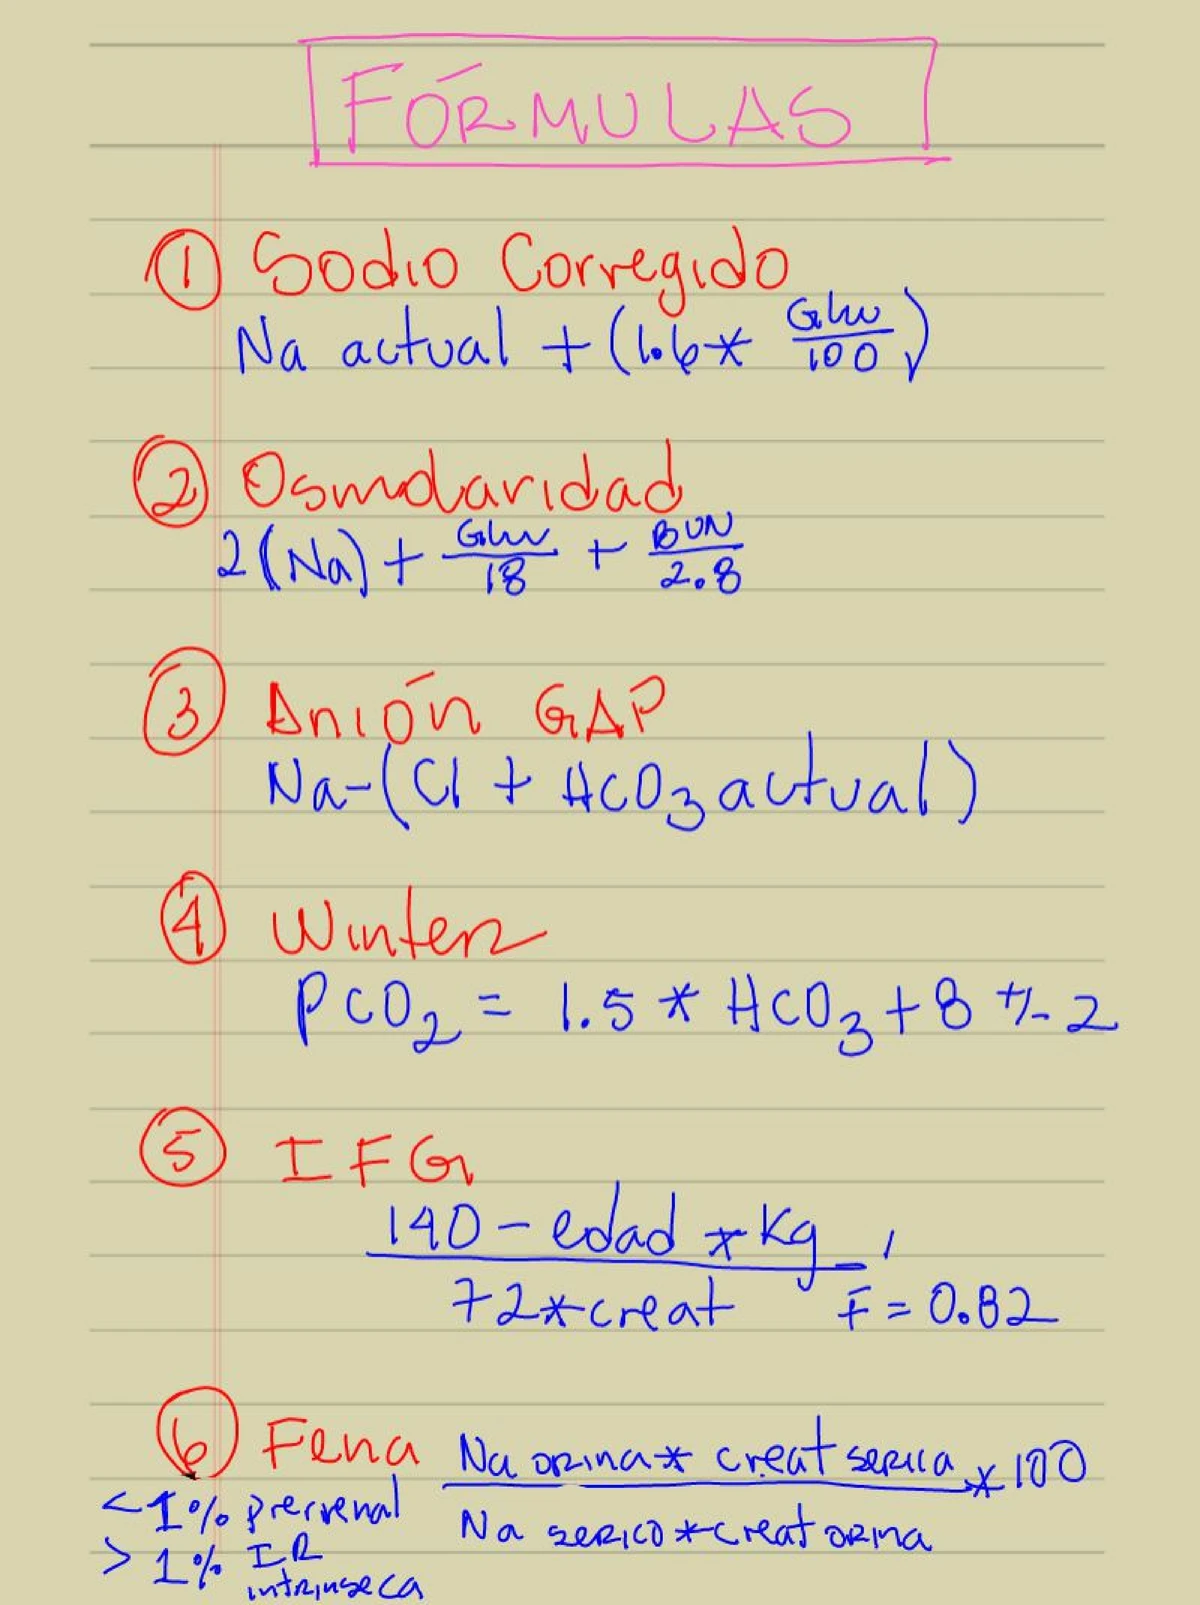 FÓRMULAS
① Sodio Corregido
Na actual + (1.6 * Glu/100)
② Osmolaridad
2(Na) + Glu/18 + BUN/2.8
③ Anión GAP
Na-(Cl + HCO3 actual)
④ Winter
PCO2 = 1.5 * HCO3 + 8 +/- 2
⑤ IFG
140 - edad * Kg
72 * creat F = 0.82
⑥ Fena Na orina * creat serica * 100
<1% prerrenal Na serico * creat orina
>1% IR
intrinseca